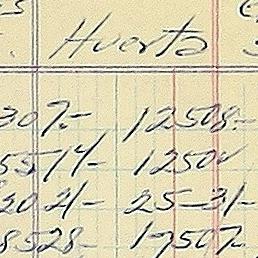 Huerta
307.- 12508.-
5514- 12500
2021- 25-31-
8528- 17507.